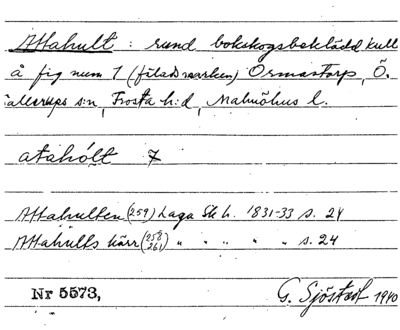 Attahult : rund bokskogsbeklädd kull
å fig num 1 (filadmarken) Ormastorp, Ö.
allerups s:n, Frosta h:d, Malmöhus l.
atahólt 7
Attahulten (259) Laga Sk h. 1831-33 s. 24
Attahults kärr (258 261) " " " " " s. 24
Nr 5573, G. Sjöstedt 1940